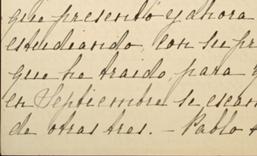 que presentó y ahora
estudiando, con su pr
que ha traido para
en Septiembre se exam
de otras tres. — Pablo